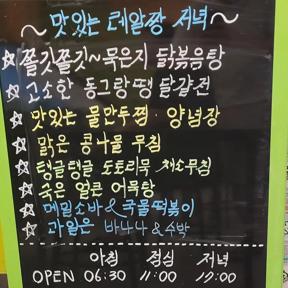 ~맛있는 레알짱 저녁~
☆ 쫄깃쫄깃~묵은지 닭볶음탕
☆ 고소한 동그랑땡 달걀전
☆ 맛있는 물만두찜·양념장
☆ 맑은 콩나물 무침
☆ 탱글탱글 도토리묵 채소무침
☆ 굵은 얼큰 어묵탕
☆ 메밀소바 & 국물떡볶이
☆ 과일은 바나나 & 수박
아침 점심 저녁
OPEN 06:30 11:00 17:00